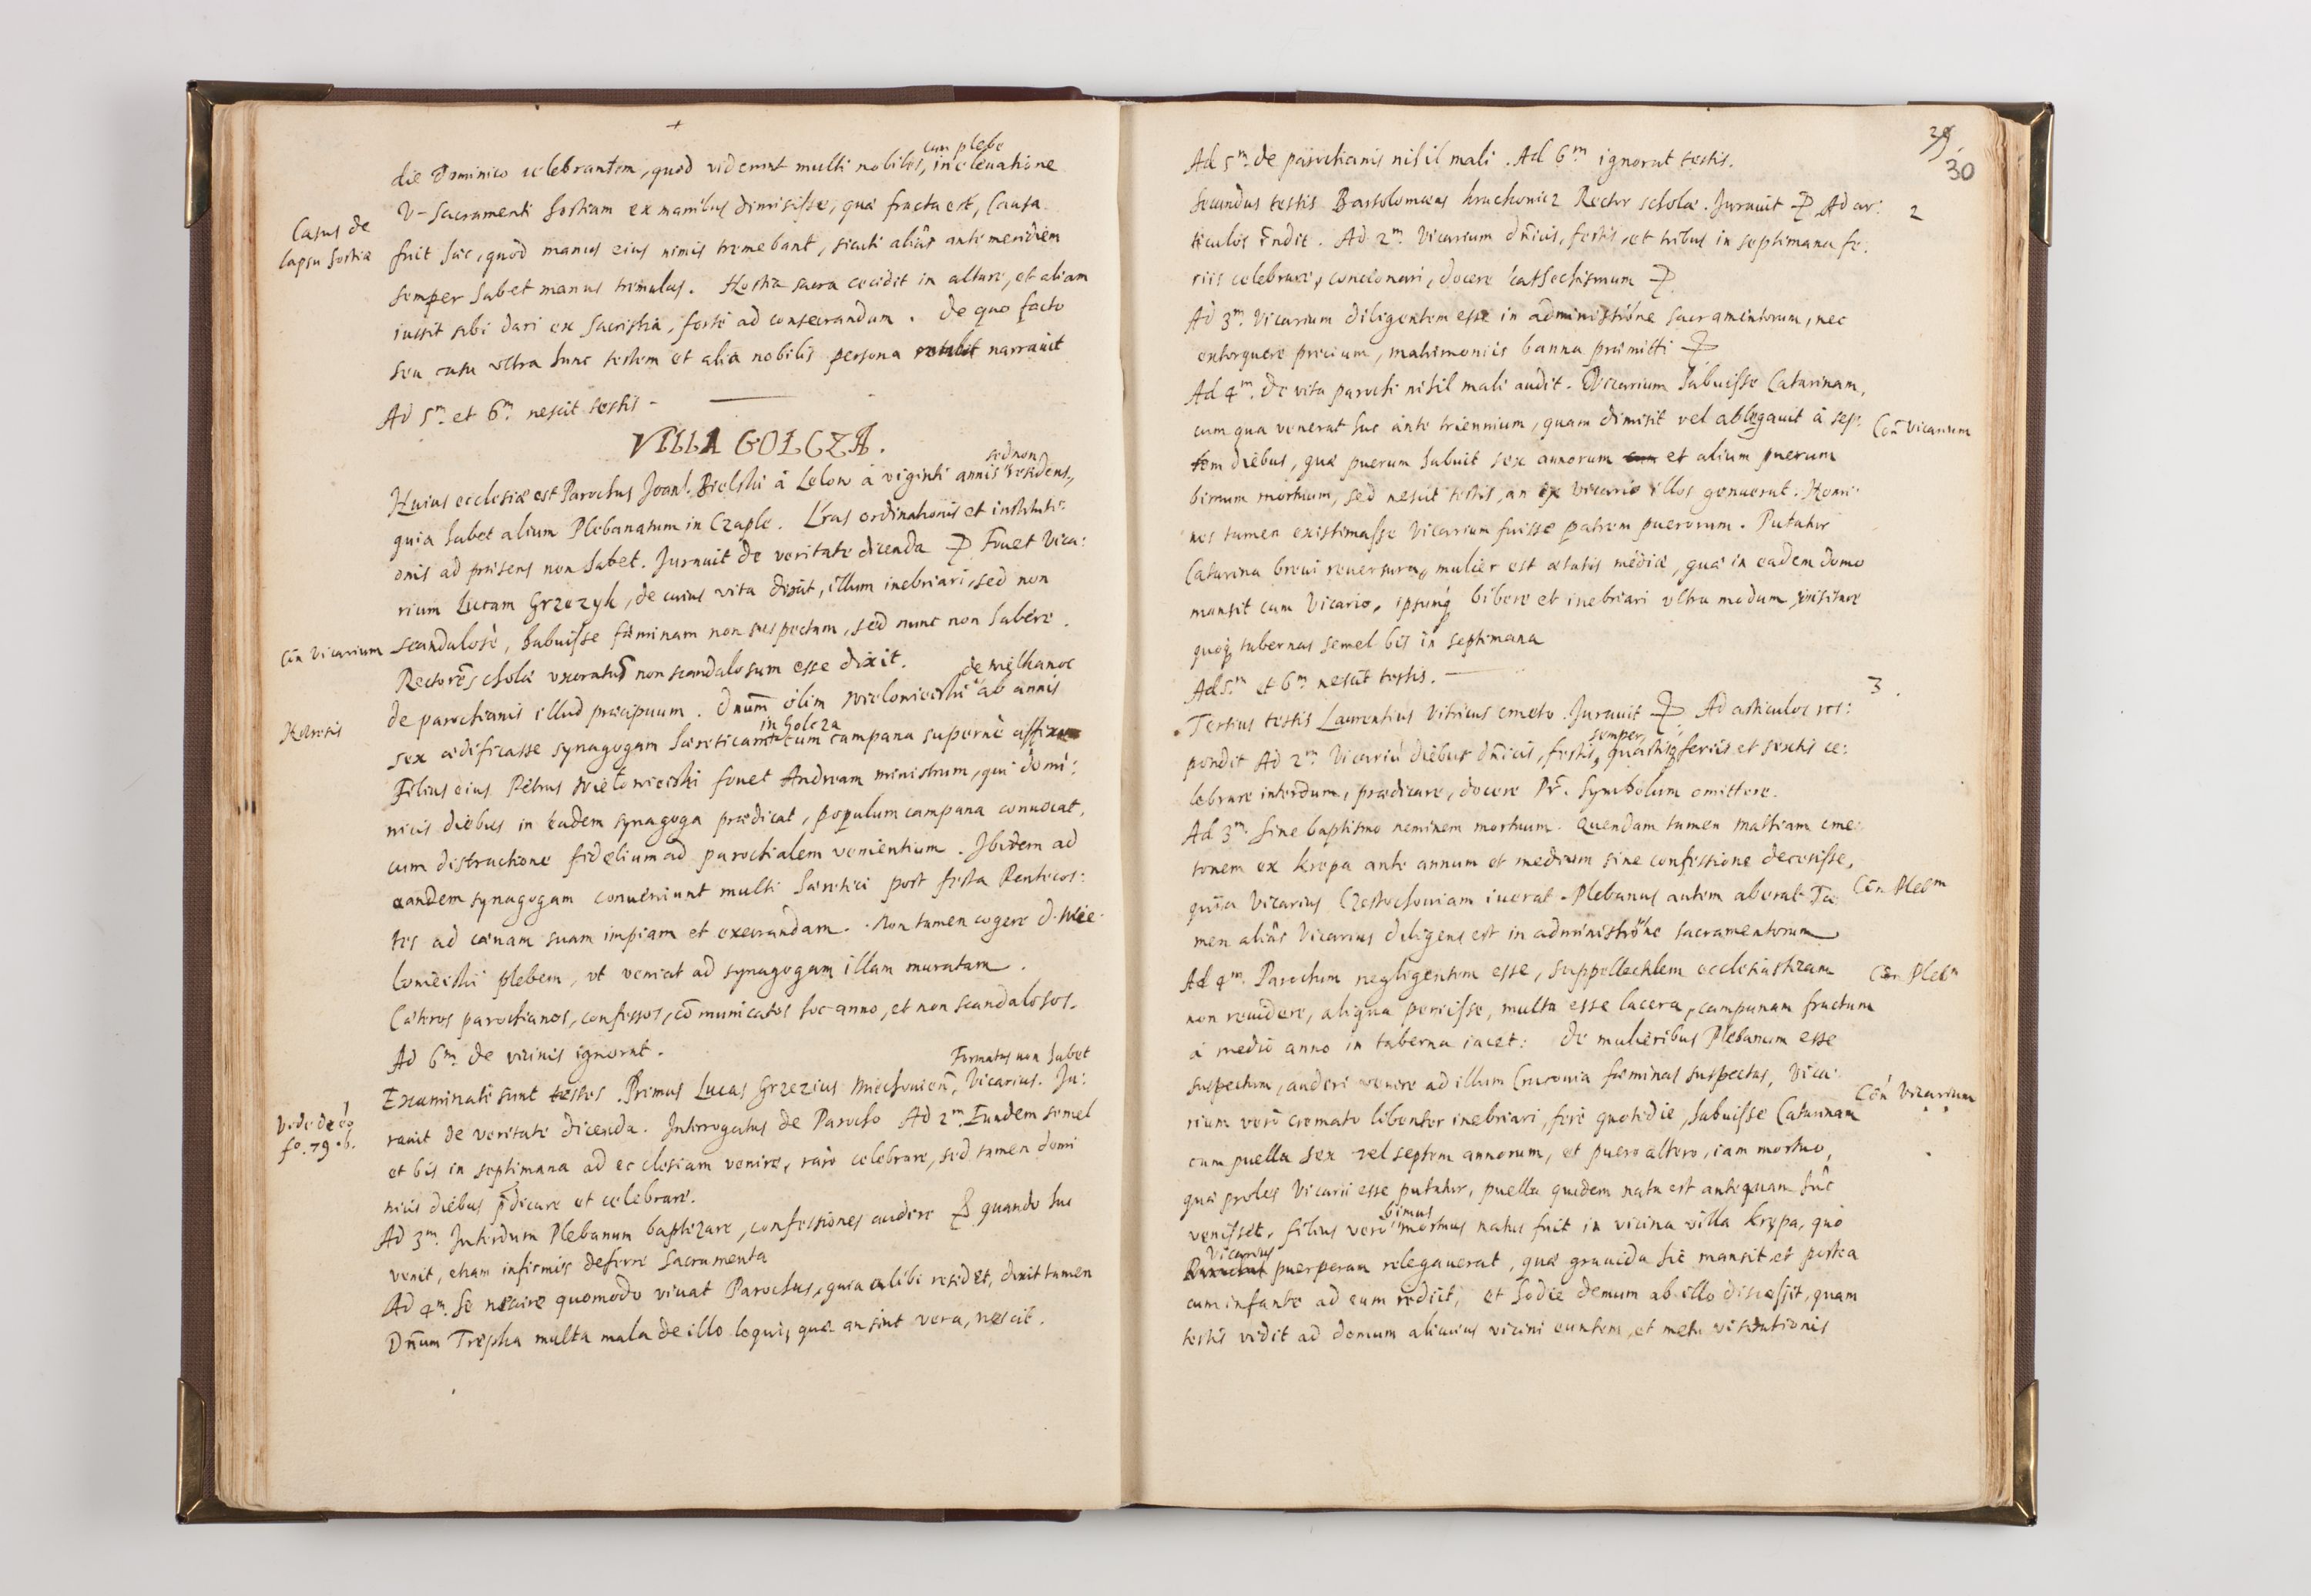 +
cum plebe
die Dominico celebrantem, quod viderunt multi nobiles, in eleuatione
V- Sacramenti hostiam ex manibus dimisisse, quæ fracta est, Causa
Casus de
lapsu hostiæ
fuit hæc, quod manus eius nimis tremebant, sicuti aliâs ante meridiem
semper habet manus tremulas. Hostia sacra cecidit in altare, et aliam
iussit sibi dari ex Sacristia, forte ad consecrandum. De quo facto
seu casu vltra hunc testem et alia nobilis persona narrauit
Ad 5m. et 6m. nescit testis -
VILLA GOLCZA.
sed non
Huius ecclesiæ est Parochus Joan: Bielski à Lelow à viginti annis residens,
quia habet alium Plebanatum in Czaple. Lras ordinationis et instituti-
onis ad præsens non habet. Jurauit de veritate dicenda Fouet Vica:
rium Lucam Grzezyk, de cuius vita dixit, illum inebriari, sed non
Con Vicarium
scandalosè, habuisse fœminam non suspectam, sed nunc non habere.
Rectorē scholæ vxoratū non scandalosum esse dixit.
de Mělkanoc
De parochianis illud præcipuum. Dnūm olim Wielowieiski ab annis
Hæresis
in Golcza
sex ædificasse synagogam hæreticam cum campana superne affixa
Filius eius Petrus Wielowieiski fouet Andream ministrum, qui domi:
nicis diebus in eadem synagoga prædicat, populum campana conuocat,
cum distractione fidelium ad parochialem venientium. Ibidem ad
eandem synagogam conueniunt multi hæretici post festa Pentecos:
tes ad cænam suam impiam et execrandam. Non tamen cogere D. Wie-
lowieiski plebem, vt veniat ad synagogam illam muratam.
Cæteros parochianos, confessos, cōmunicatos hoc anno, et non scandalosos.
Ad 6m. de vicinis ignorat.
Formatus non habet
Examinati sunt testes. Primus Lucas Grzezius Miechouien, Vicarius. Ju:
Vide de eo
fo. 79. b.
rauit de veritate dicenda. Interrogatus de Parocho Ad 2m. Eundem semel
et bis in septimana ad ecclesiam venire, raro celebrare, sed tamen domi
nicis diebus p̄dicare et celebrare.
Ad 3m. Interdum Plebanum baptizare, confessiones audire quando huc
venit, etiam infirmis deferre Sacramenta
Ad 4m. Se nescire quomodo viuat Parochus, quia alibi residet, dixit tamen
Dnūm Trepka multa mala de illo loqui, quæ an sint vera, nescit.
39.
30
Ad 5m. de parochianis nihil mali. Ad 6m. ignorat testis.
Secundus testis Bartolomæus Rector scholæ. Jurauit Ad ar:
2
ticulos rn̄dit. Ad 2m. Vicarium dn̄icis, festis, et tribus in septimana fe:
riis celebrare, concionari, docere Cathechismum
Ad 3m. Vicarium diligentem esse in administrōne Sacramentorum, nec
extorquere precium, matrimoniis banna præmitti
Ad 4m. De vita parochi nihil mali audit. Vicarium habuisse Catarinam,
cum qua venerat huc ante triennium, quam dimisit vel ablegauit à sep:
Con Vicarium
tem diebus, quæ puerum habuit sex annorum et alium puerum
bimum mortuum, sed nescit testis, an ex Vicario illos genuerat. Homi-
nes tamen existimasse Vicarium fuisse patrem puerorum. Putatur
Catarina breui reuersura, mulier est ætatis mediæ, quæ in eadem domo
mansit cum Vicario, ipsumq; bibere et inebriari vltra modum, visitare
quoq; tabernas semel bis in septimana
Ad 5m et 6m nescit testis.
3.
Tertius testis Laurentius Vitricus cmeto. Jurauit Ad articulos res:
semper
pondit Ad 2m. Vicariū diebus dn̄icis, festis, quartisq feriis et sextis ce:
lebrare interdum, prædicare, docere Pr̄. Symbolum omittere.
Ad 3m. Sine baptismo neminem mortuum. Quendam tamen Mathiam cme:
tonem ex Krepa ante annum et medium sine confessione decessisse,
quia Vicarius Czestochouiam iuerat. Plebanus autem aberat. Ta
Con Plebm
men aliâs Vicarius diligens est in administrōne sacramentorum
Ad 4m. Parochum negligentem esse, suppellectilem ecclesiasticam
Con Plebm
non reuidere, aliqua periisse, multa esse lacera, campanam fractam
à medio anno in taberna iacet: de mulieribus Plebanum esse
suspectum, audiri venire ad illum Cracouia fœminas suspectas, Vica-
Con Vicarium
rium verò cremato libenter inebriari, ferè quotidie, habuisse Catarinam
cum puella sex vel septem annorum, et puero altero, iam mortuo,
quæ proles Vicarii esse putatur, puella quidem nata est antequam huc
bimus
venisset, filius verò mortuus natus fuit in vicina villa Krypa, quò
Vicarius
puerperam relegauerat, quæ grauida hic mansit et postea
cum infante ad eum rediit, et hodie demum ab illo discessit, quam
testis vidit ad domum alicuius vicini euntem, et metu visitationis